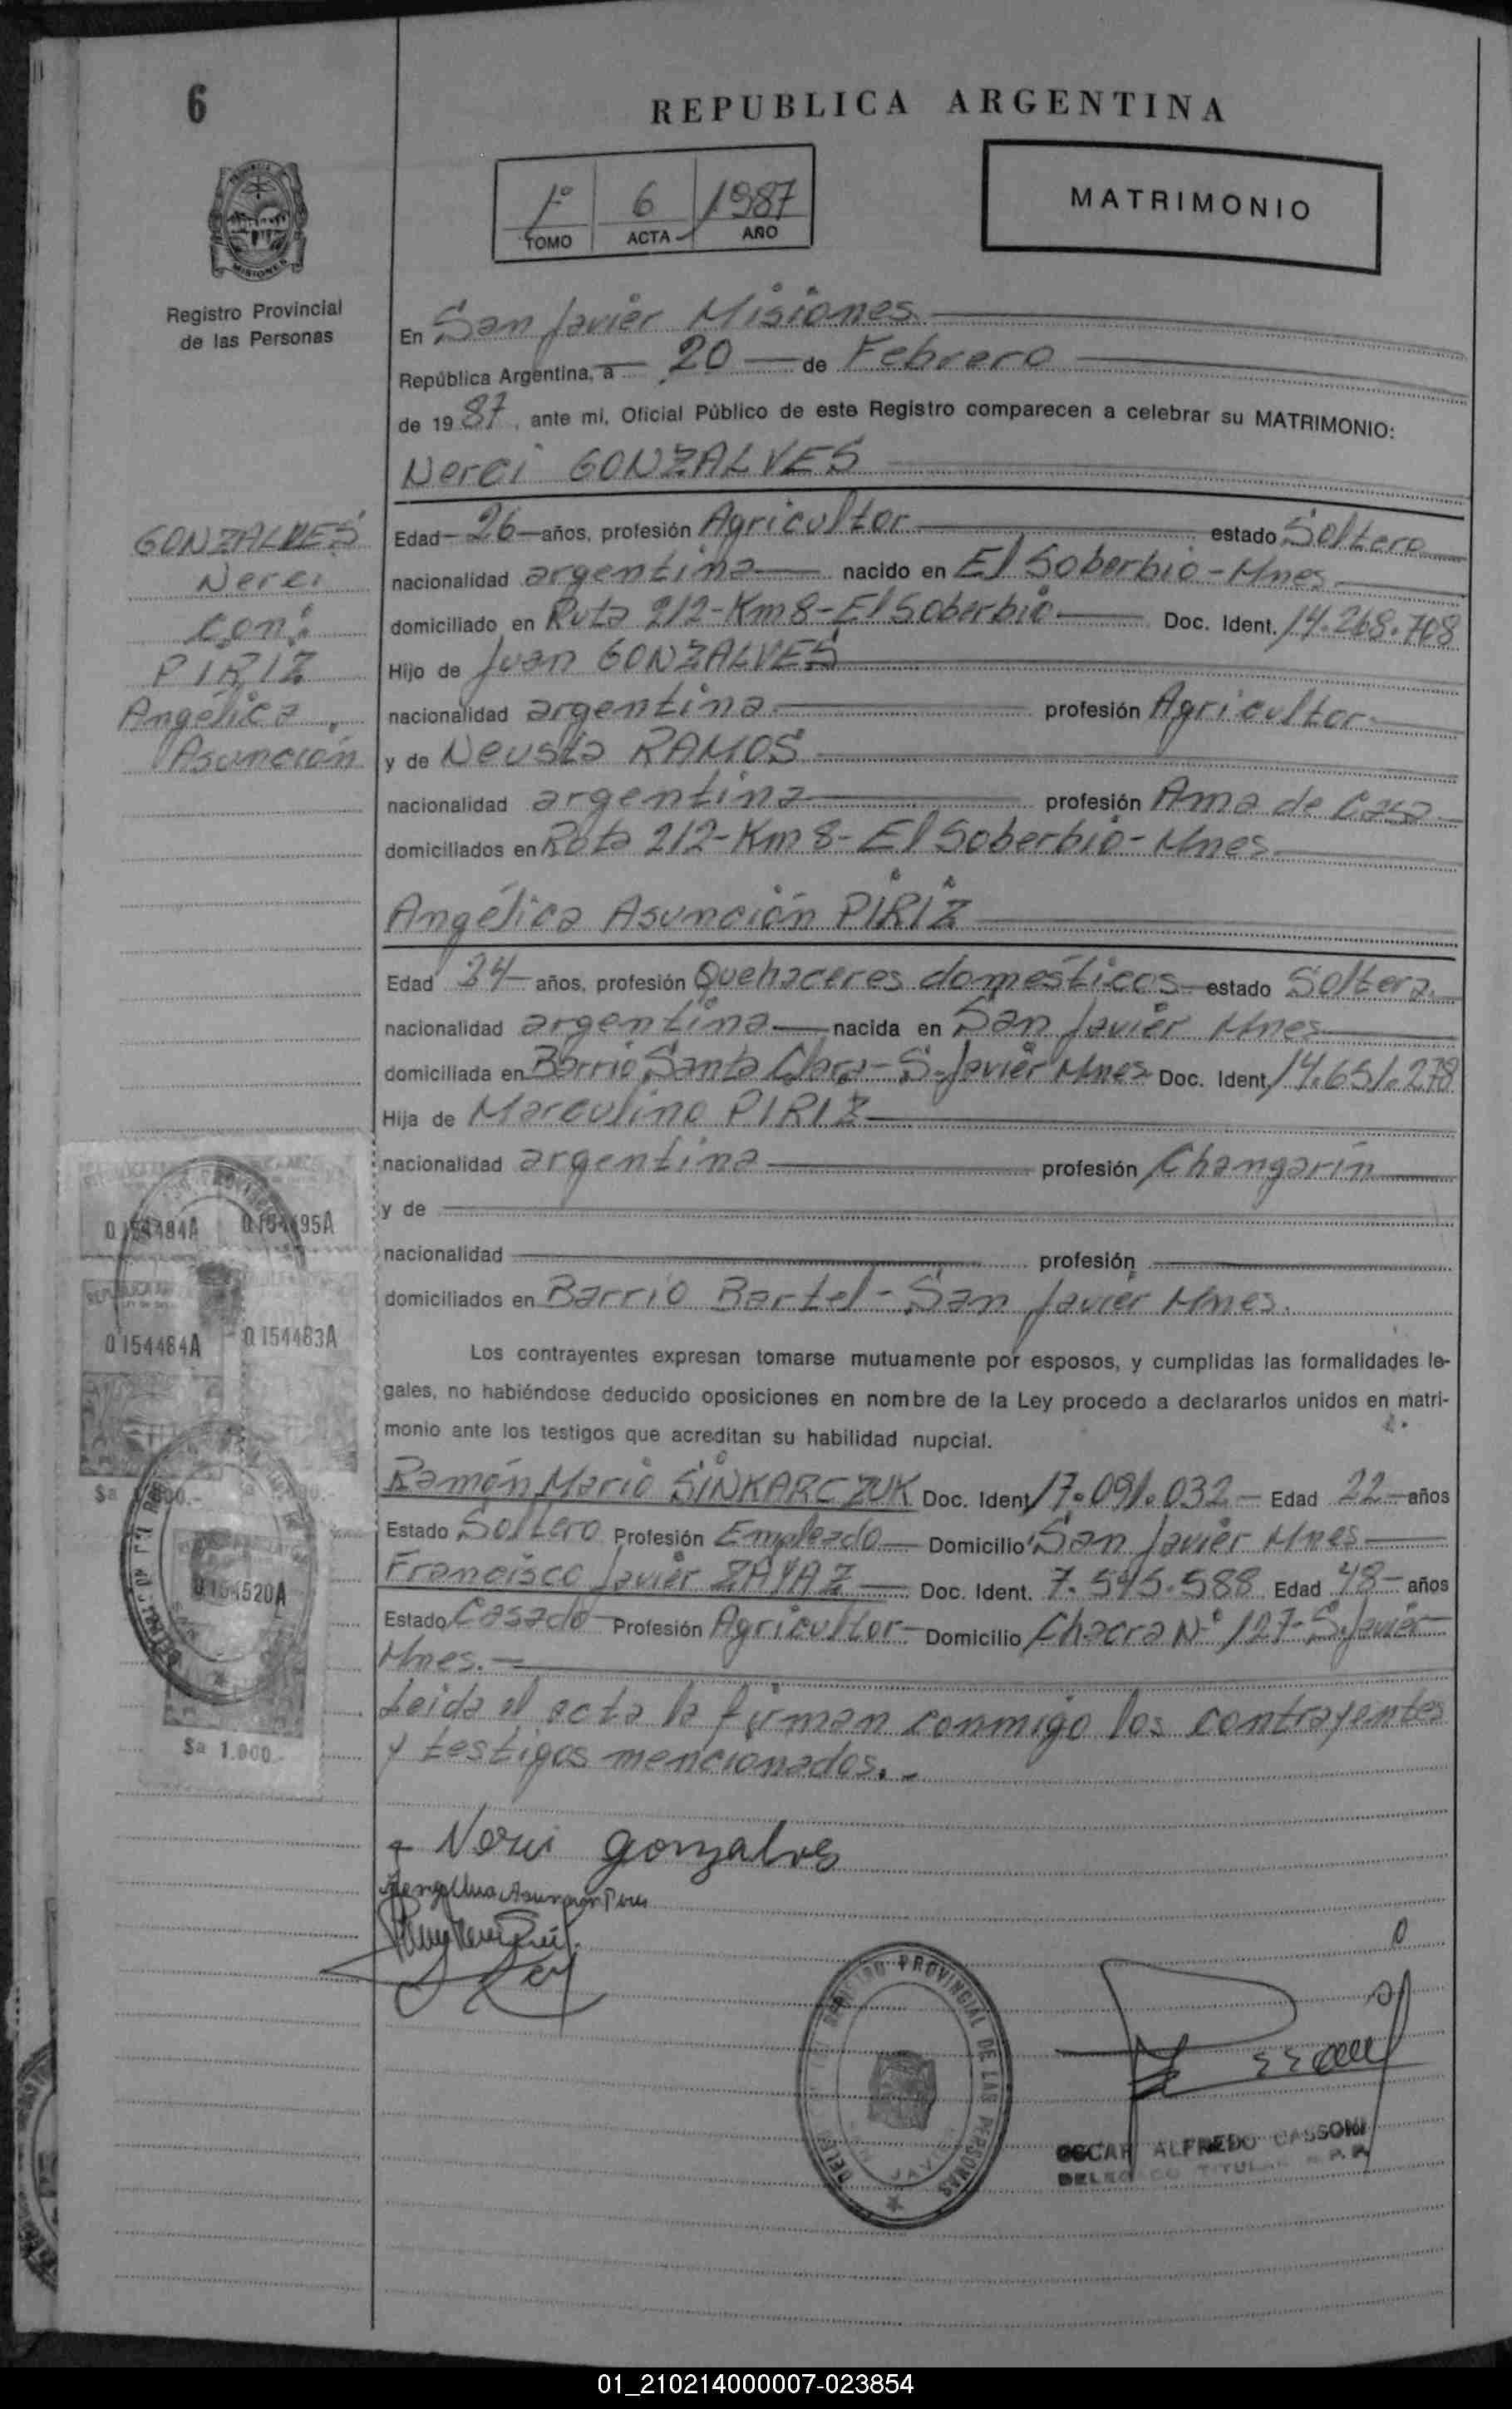 6
REPUBLICA ARGENTINA
MISIONES
1º 6 1987
TOMO ACTA AÑO
MATRIMONIO
Registro Provincial
de las Personas
En San Javier Misiones
República Argentina, a 20 de Febrero
de 1987, ante mi, Oficial Público de este Registro comparecen a celebrar su MATRIMONIO:
Nerci GONZALVES
GONZALVES
Nerci
con:
PIRIZ
Angélica
Asunción
Edad 26 años, profesión Agricultor estado Soltero
nacionalidad argentina nacido en El Soberbio - Mnes
domiciliado en Ruta 212 - Km 8 - El Soberbio Doc. Ident. 14.268.708
Hijo de Juan GONZALVES
nacionalidad argentina profesión Agricultor
y de Neusta RAMOS
nacionalidad argentina profesión Ama de Casa
domiciliados en Ruta 212 - Km 8 - El Soberbio - Mnes
Angélica Asunción PIRIZ
Edad 24 años, profesión Quehaceres domésticos estado Soltera
nacionalidad argentina nacida en San Javier Mnes
domiciliada en Barrio Santa Clara - S. Javier Mnes Doc. Ident. 14.651.278
Hija de Marculino PIRIZ
nacionalidad argentina profesión Changarín
y de
nacionalidad profesión
domiciliados en Barrio Bartel - San Javier Mnes.
0154484A 0154495A
0154484A 0154483A
0154520A
$a 1.000.-
Los contrayentes expresan tomarse mutuamente por esposos, y cumplidas las formalidades le-
gales, no habiéndose deducido oposiciones en nombre de la Ley procedo a declararlos unidos en matri-
monio ante los testigos que acreditan su habilidad nupcial.
Ramón Mario SINKARCZUK Doc. Ident 17.091.032 Edad 22 años
Estado Soltero Profesión Empleado Domicilio San Javier Mnes
Francisco Javier ZAYAZ Doc. Ident. 7.545.588 Edad 48 años
Estado Casado Profesión Agricultor Domicilio Chacra Nº 127 - S. Javier
Mnes.
Leida el acta la firman conmigo los contrayentes
y testigos mencionados.
Nerci gonzalves
REGISTRO PROVINCIAL DE LAS PERSONAS
OSCAR ALFREDO CASSONI
DELEGADO TITULAR R.P.P.
01_210214000007-023854